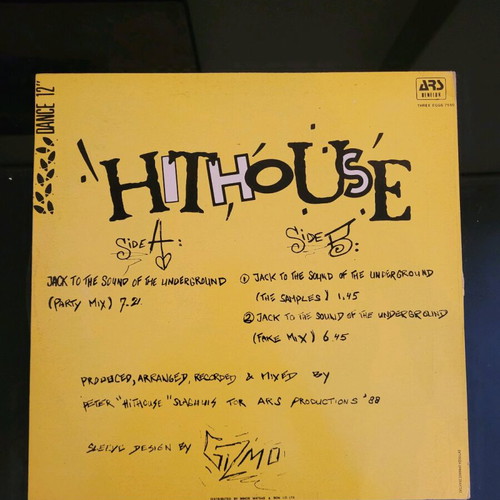 ARS
BENELUX
DANCE 12"
HITHOUSE
SIDE A:
JACK TO THE SOUND OF THE UNDERGROUND
(PARTY MIX) 7.21
SIDE B:
① JACK TO THE SOUND OF THE UNDERGROUND
(THE SAMPLES) 1.45
② JACK TO THE SOUND OF THE UNDERGROUND
(FAKE MIX) 6.45
PRODUCED, ARRANGED, RECORDED & MIXED BY
PETER "HITHOUSE" SLAGHUIS FOR ARS PRODUCTIONS '88
SLEEVE DESIGN BY GIZMO